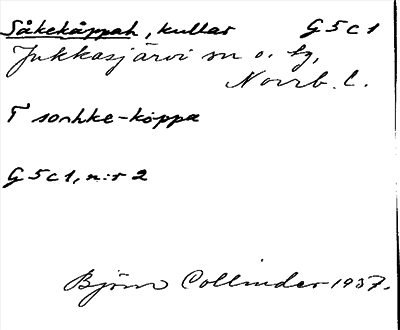 Såkekåppah, kullar G5c1
Jukkasjärvi sn o. tg,
Norrb. l.
T sorhke-kåppa
G5c1, n:r 2
Björn Collinder 1937.